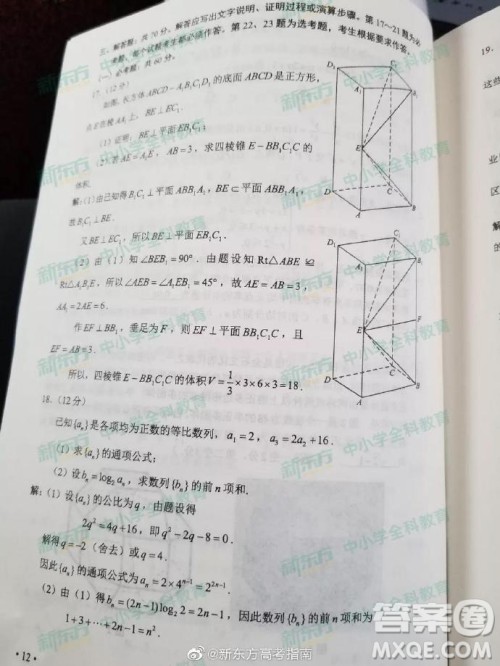 三、解答题：共70分。解答应写出文字说明、证明过程或演算步骤。第17～21题为必
考题，每个试题考生都必须作答。第22、23题为选考题，考生根据要求作答。
(一) 必考题：共60分。
17. (12分)
如图，长方体ABCD－A₁B₁C₁D₁的底面ABCD是正方形，
点E在棱AA₁上，BE⊥EC₁.
(1) 证明：BE⊥平面EB₁C₁;
(2) 若AE＝A₁E，AB＝3，求四棱锥E－BB₁C₁C的
体积.
解：(1) 由已知得B₁C₁⊥平面ABB₁A₁，BE⊂平面ABB₁A₁，
故B₁C₁⊥BE.
又BE⊥EC₁，所以BE⊥平面EB₁C₁.
(2) 由 (1) 知∠BEB₁＝90°. 由题设知Rt△ABE≌
Rt△A₁B₁E，所以∠AEB＝∠A₁EB₁＝45°，故AE＝AB＝3，
AA₁＝2AE＝6.
作EF⊥BB₁，垂足为F，则EF⊥平面BB₁C₁C，且
EF＝AB＝3.
所以，四棱锥E－BB₁C₁C的体积V＝1/3×3×6×3＝18.
18. (12分)
已知{aₙ}是各项均为正数的等比数列，a₁＝2，a₃＝2a₂＋16.
(1) 求{aₙ}的通项公式;
(2) 设bₙ＝log₂aₙ，求数列{bₙ}的前n项和.
解：(1) 设{aₙ}的公比为q，由题设得
2q²＝4q＋16，即q²－2q－8＝0.
解得q＝－2 (舍去) 或q＝4.
因此{aₙ}的通项公式为aₙ＝2×4ⁿ⁻¹＝2²ⁿ⁻¹.
(2) 由 (1) 得bₙ＝(2n－1)log₂2＝2n－1，因此数列{bₙ}的前n项和为
1＋3＋⋯＋2n－1＝n².
·12·
D₁
C₁
A₁
B₁
E
D
C
A
B
D₁
C₁
A₁
B₁
E
F
D
C
A
B
19.
这些
业
区
解
新东方 中小学全科教育
@新东方高考指南
答案圈
MXQE.COM